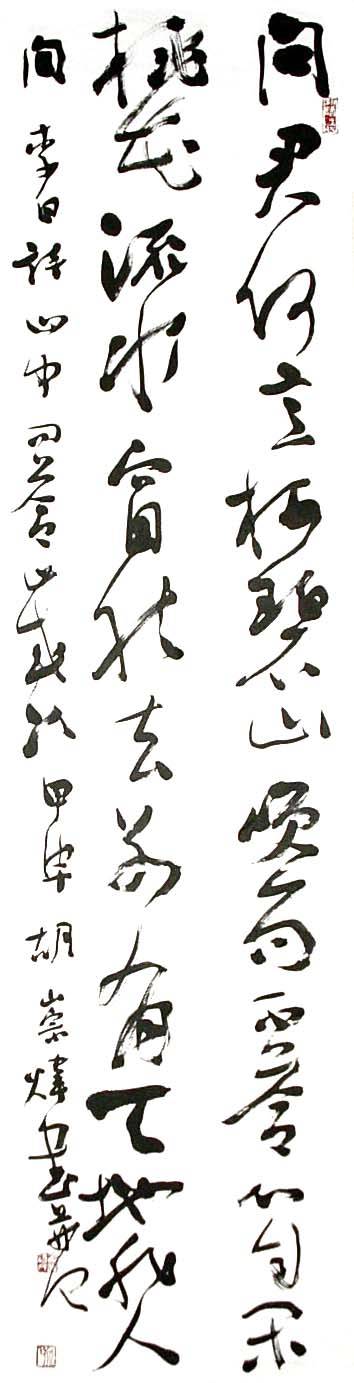 问君何意栖碧山咲而不答心自闲
桃花流水窅然去别有天地非人
间 李白诗山中问答 岁 甲 胡崇炜书并记